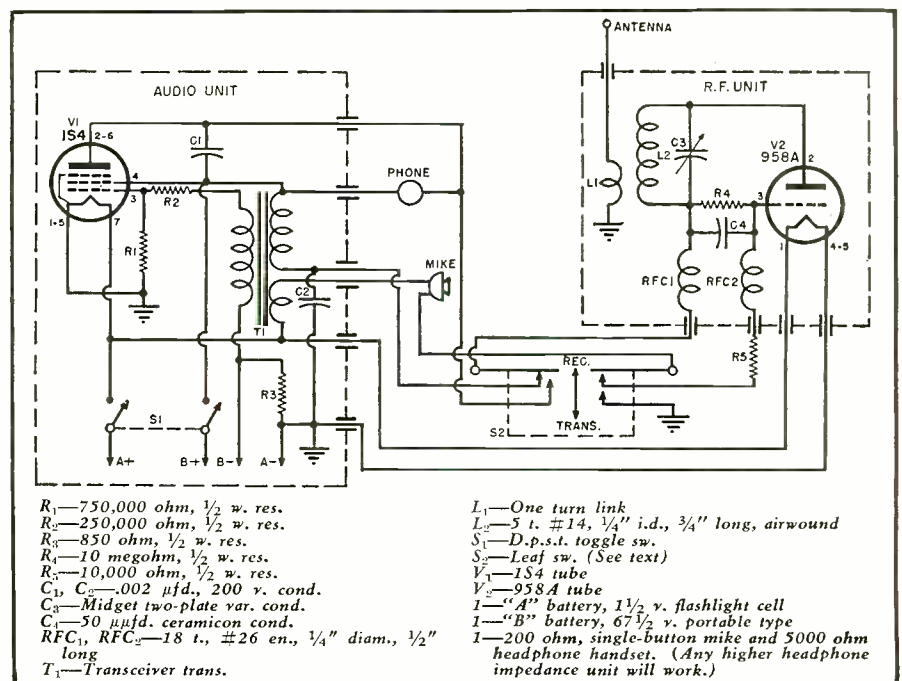 ANTENNA
AUDIO UNIT
R.F. UNIT
V1
1S4
2-6
C1
4
3
R2
1-5
7
R1
PHONE
MIKE
C2
T1
R3
S1
A+
B+
B-
A-
L1
L2
C3
V2
958A
2
R4
3
C4
1
4-5
RFC1
RFC2
R5
REC.
TRANS.
S2
R₁—750,000 ohm, ½ w. res.
R₂—250,000 ohm, ½ w. res.
R₃—850 ohm, ½ w. res.
R₄—10 megohm, ½ w. res.
R₅—10,000 ohm, ½ w. res.
C₁, C₂—.002 µfd., 200 v. cond.
C₃—Midget two-plate var. cond.
C₄—50 µµfd. ceramicon cond.
RFC₁, RFC₂—18 t., #26 en., ¼" diam., ½"
long
T₁—Transceiver trans.
L₁—One turn link
L₂—5 t. #14, ¼" i.d., ¾" long, airwound
S₁—D.p.s.t. toggle sw.
S₂—Leaf sw. (See text)
V₁—1S4 tube
V₂—958A tube
1—"A" battery, 1½ v. flashlight cell
1—"B" battery, 67½ v. portable type
1—200 ohm, single-button mike and 5000 ohm
headphone handset. (Any higher headphone
impedance unit will work.)